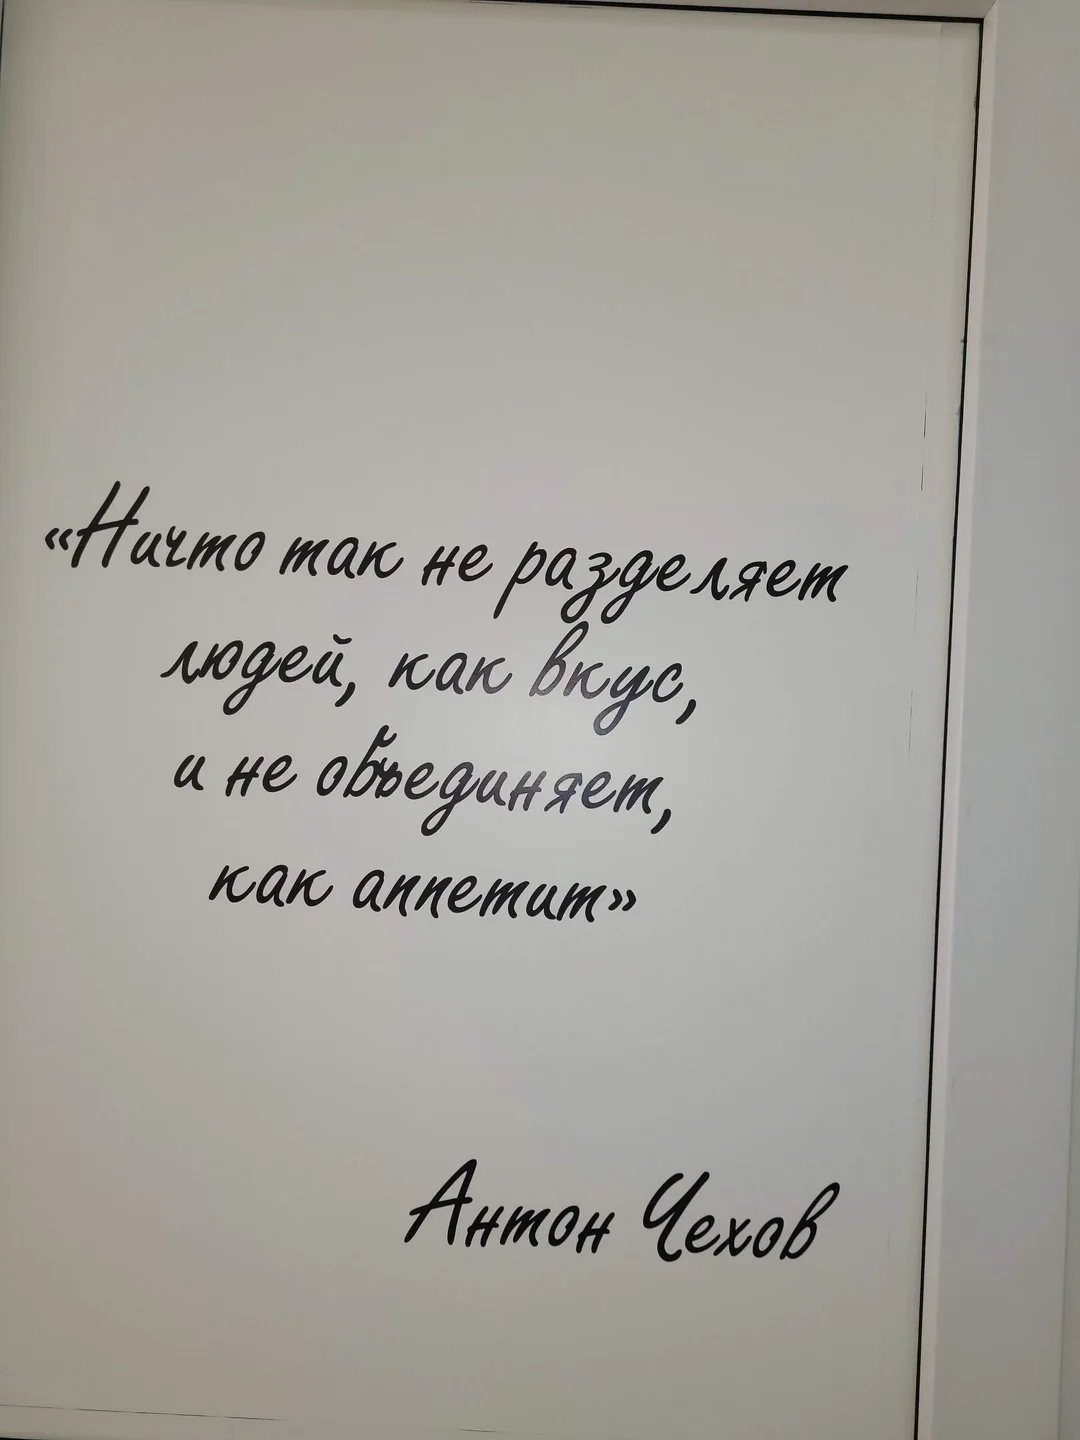 «Ничто так не разделяет
людей, как вкус,
и не объединяет,
как аппетит»
Антон Чехов